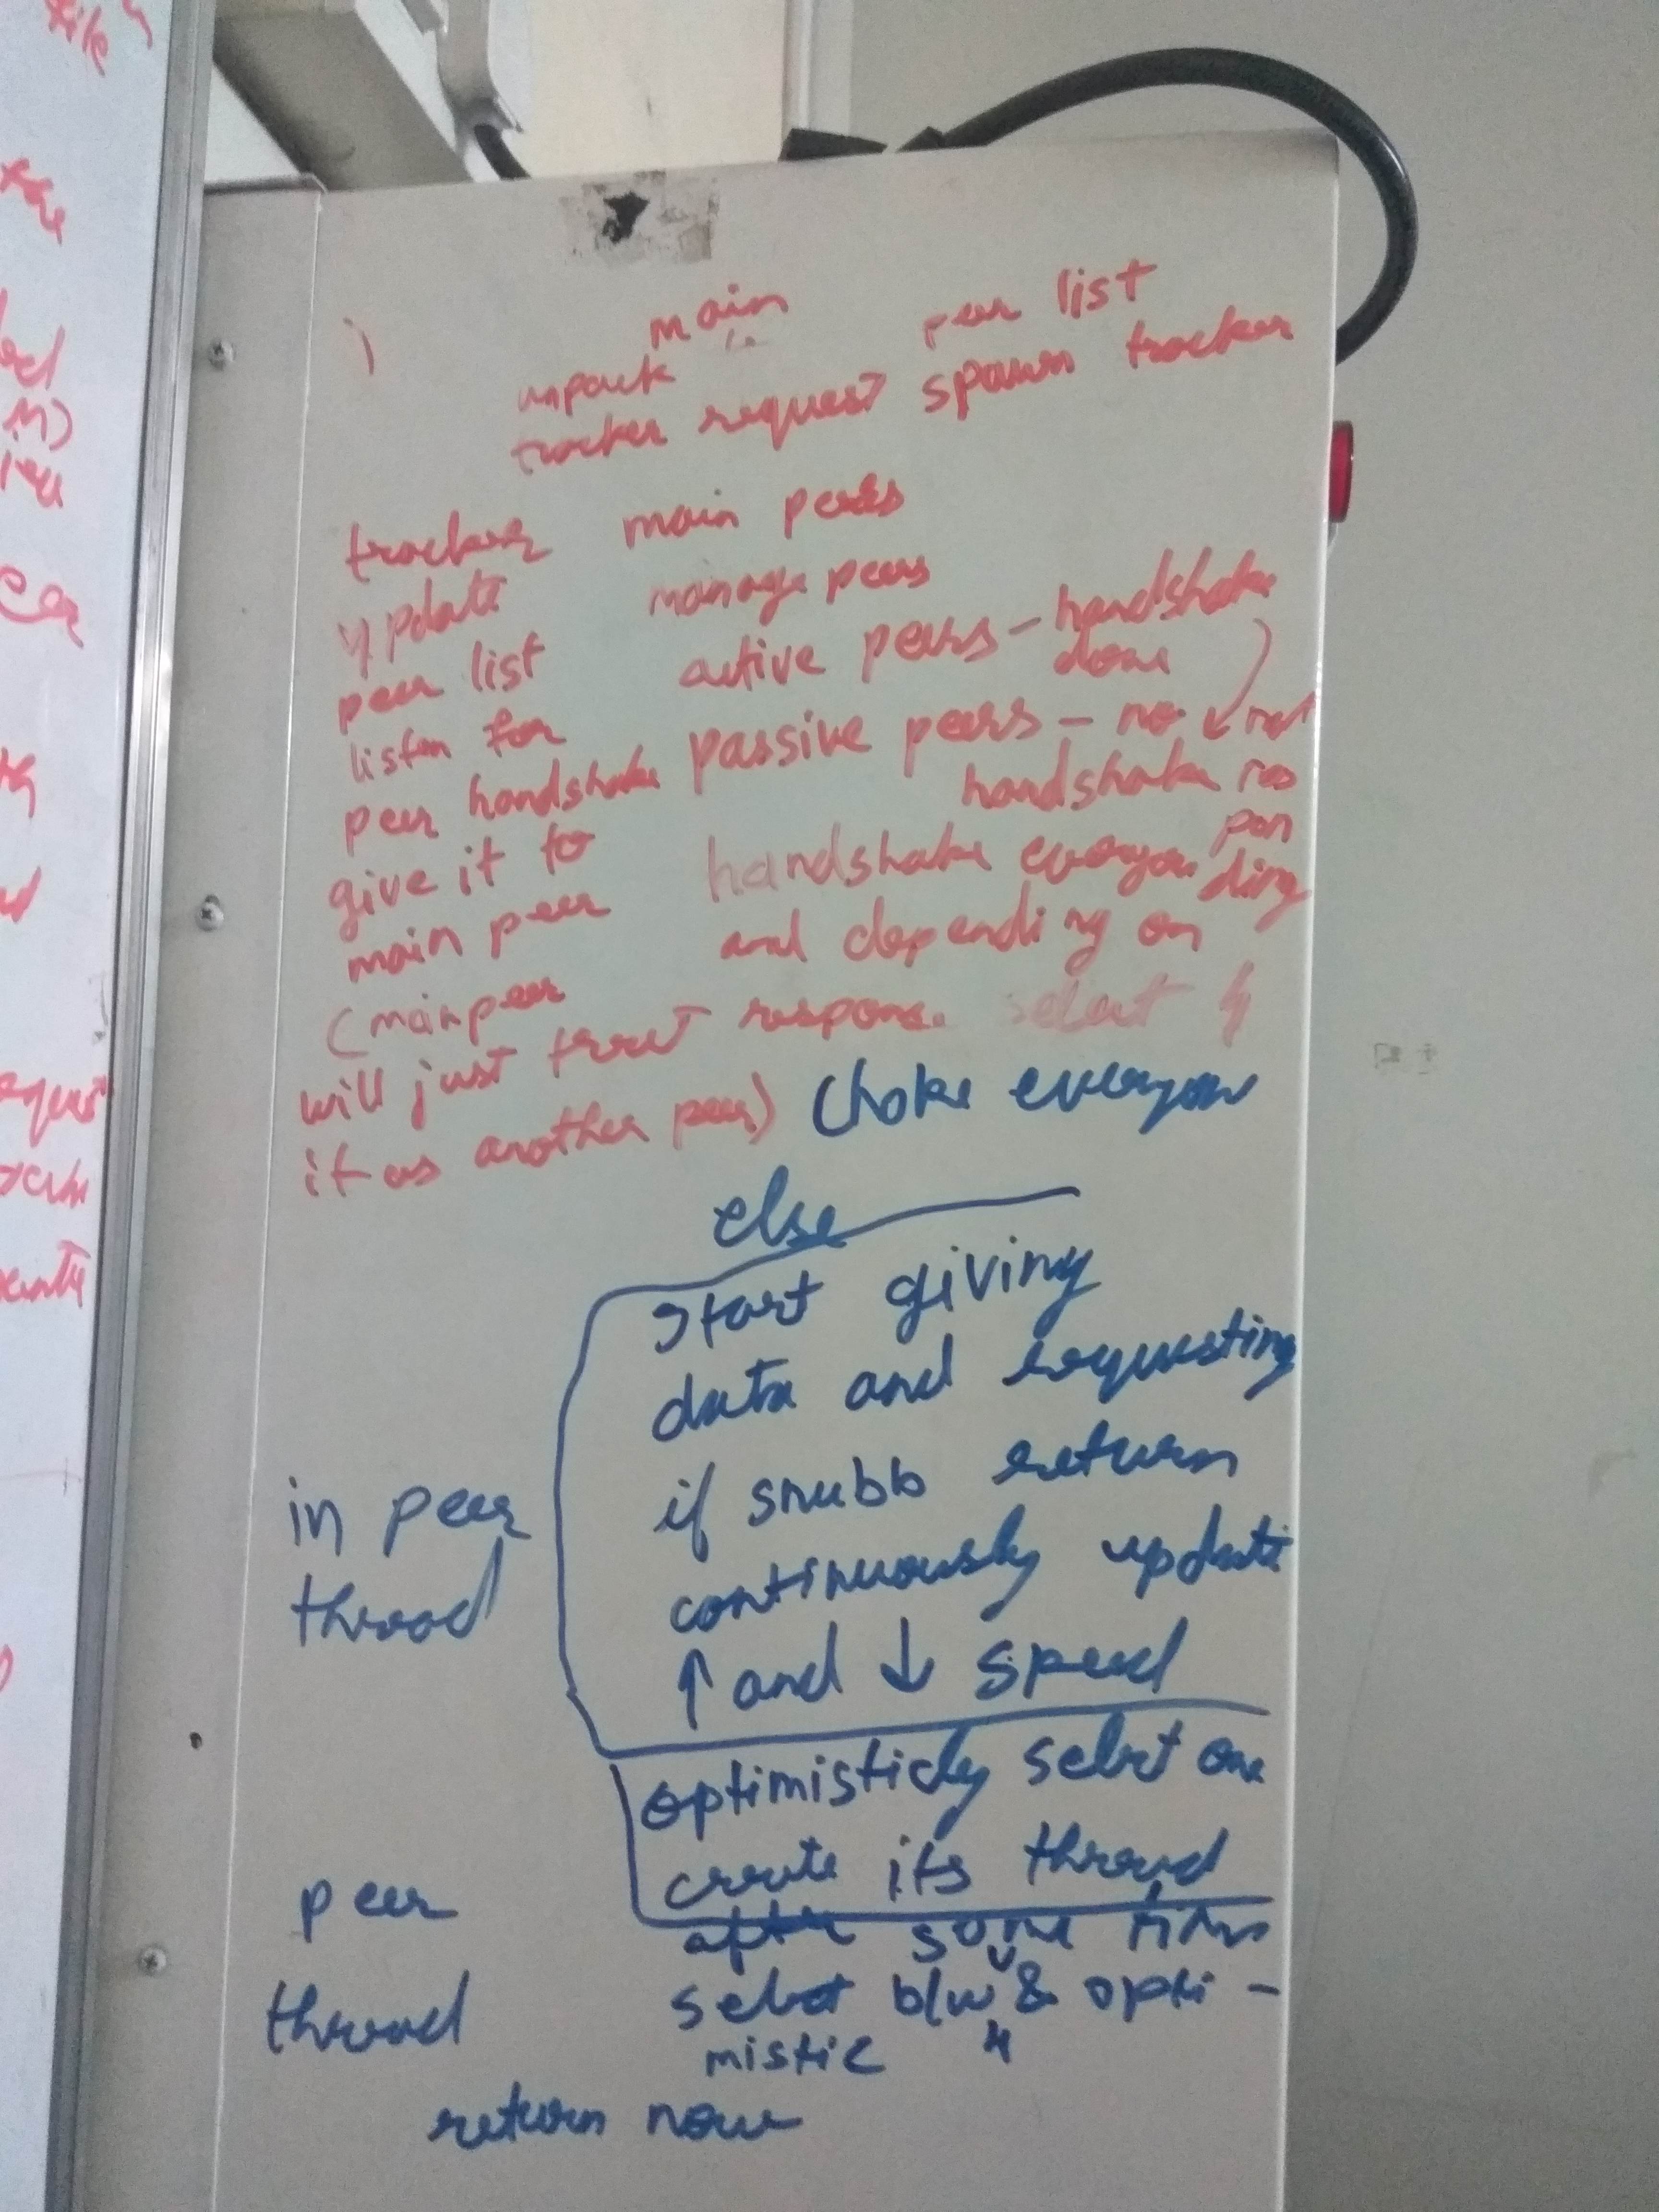 file
main
peer list
unpack
tracker request spawn tracker
tracker
update
peer list
listen for
peer handshake
give it to
main peer
(main peer
will just treat
it as another peer)
main peers
manage peers
active peers - handshake
done
passive peers - no
handshake
not
res
pon
ding
handshake everyone
and depending on
response select 4
choke everyone
else
start giving
data and requesting
if snubb return
continuously update
↑ and ↓ speed
in peer
thread
optimisticly select one
create its thread
peer
thread
after some time
select b/w 4 & opti-
mistic
return now